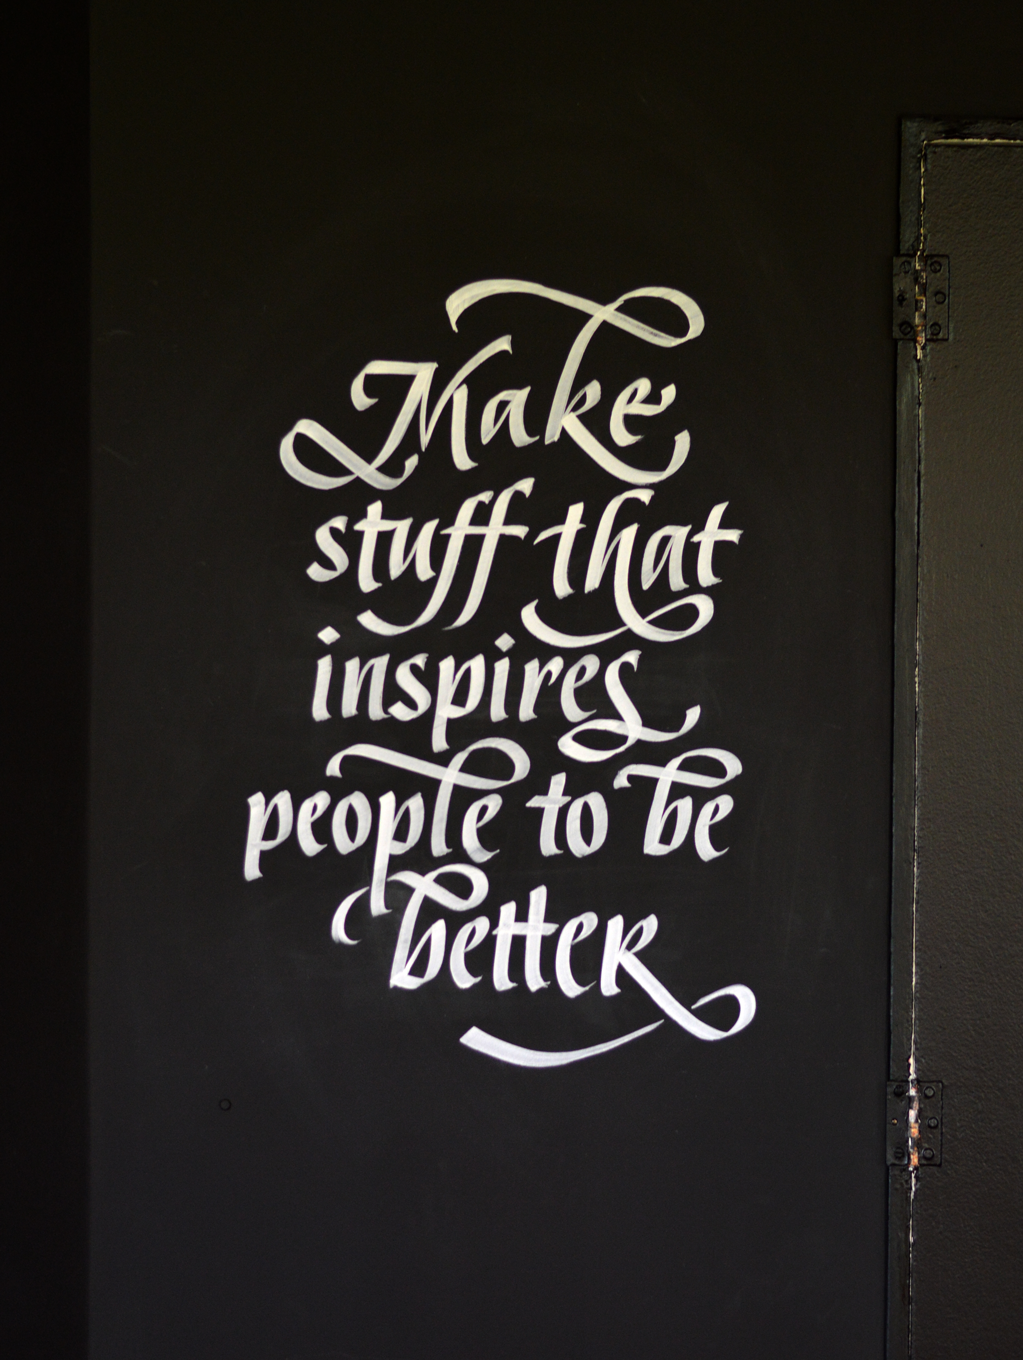 Make
stuff that
inspires
people to be
better